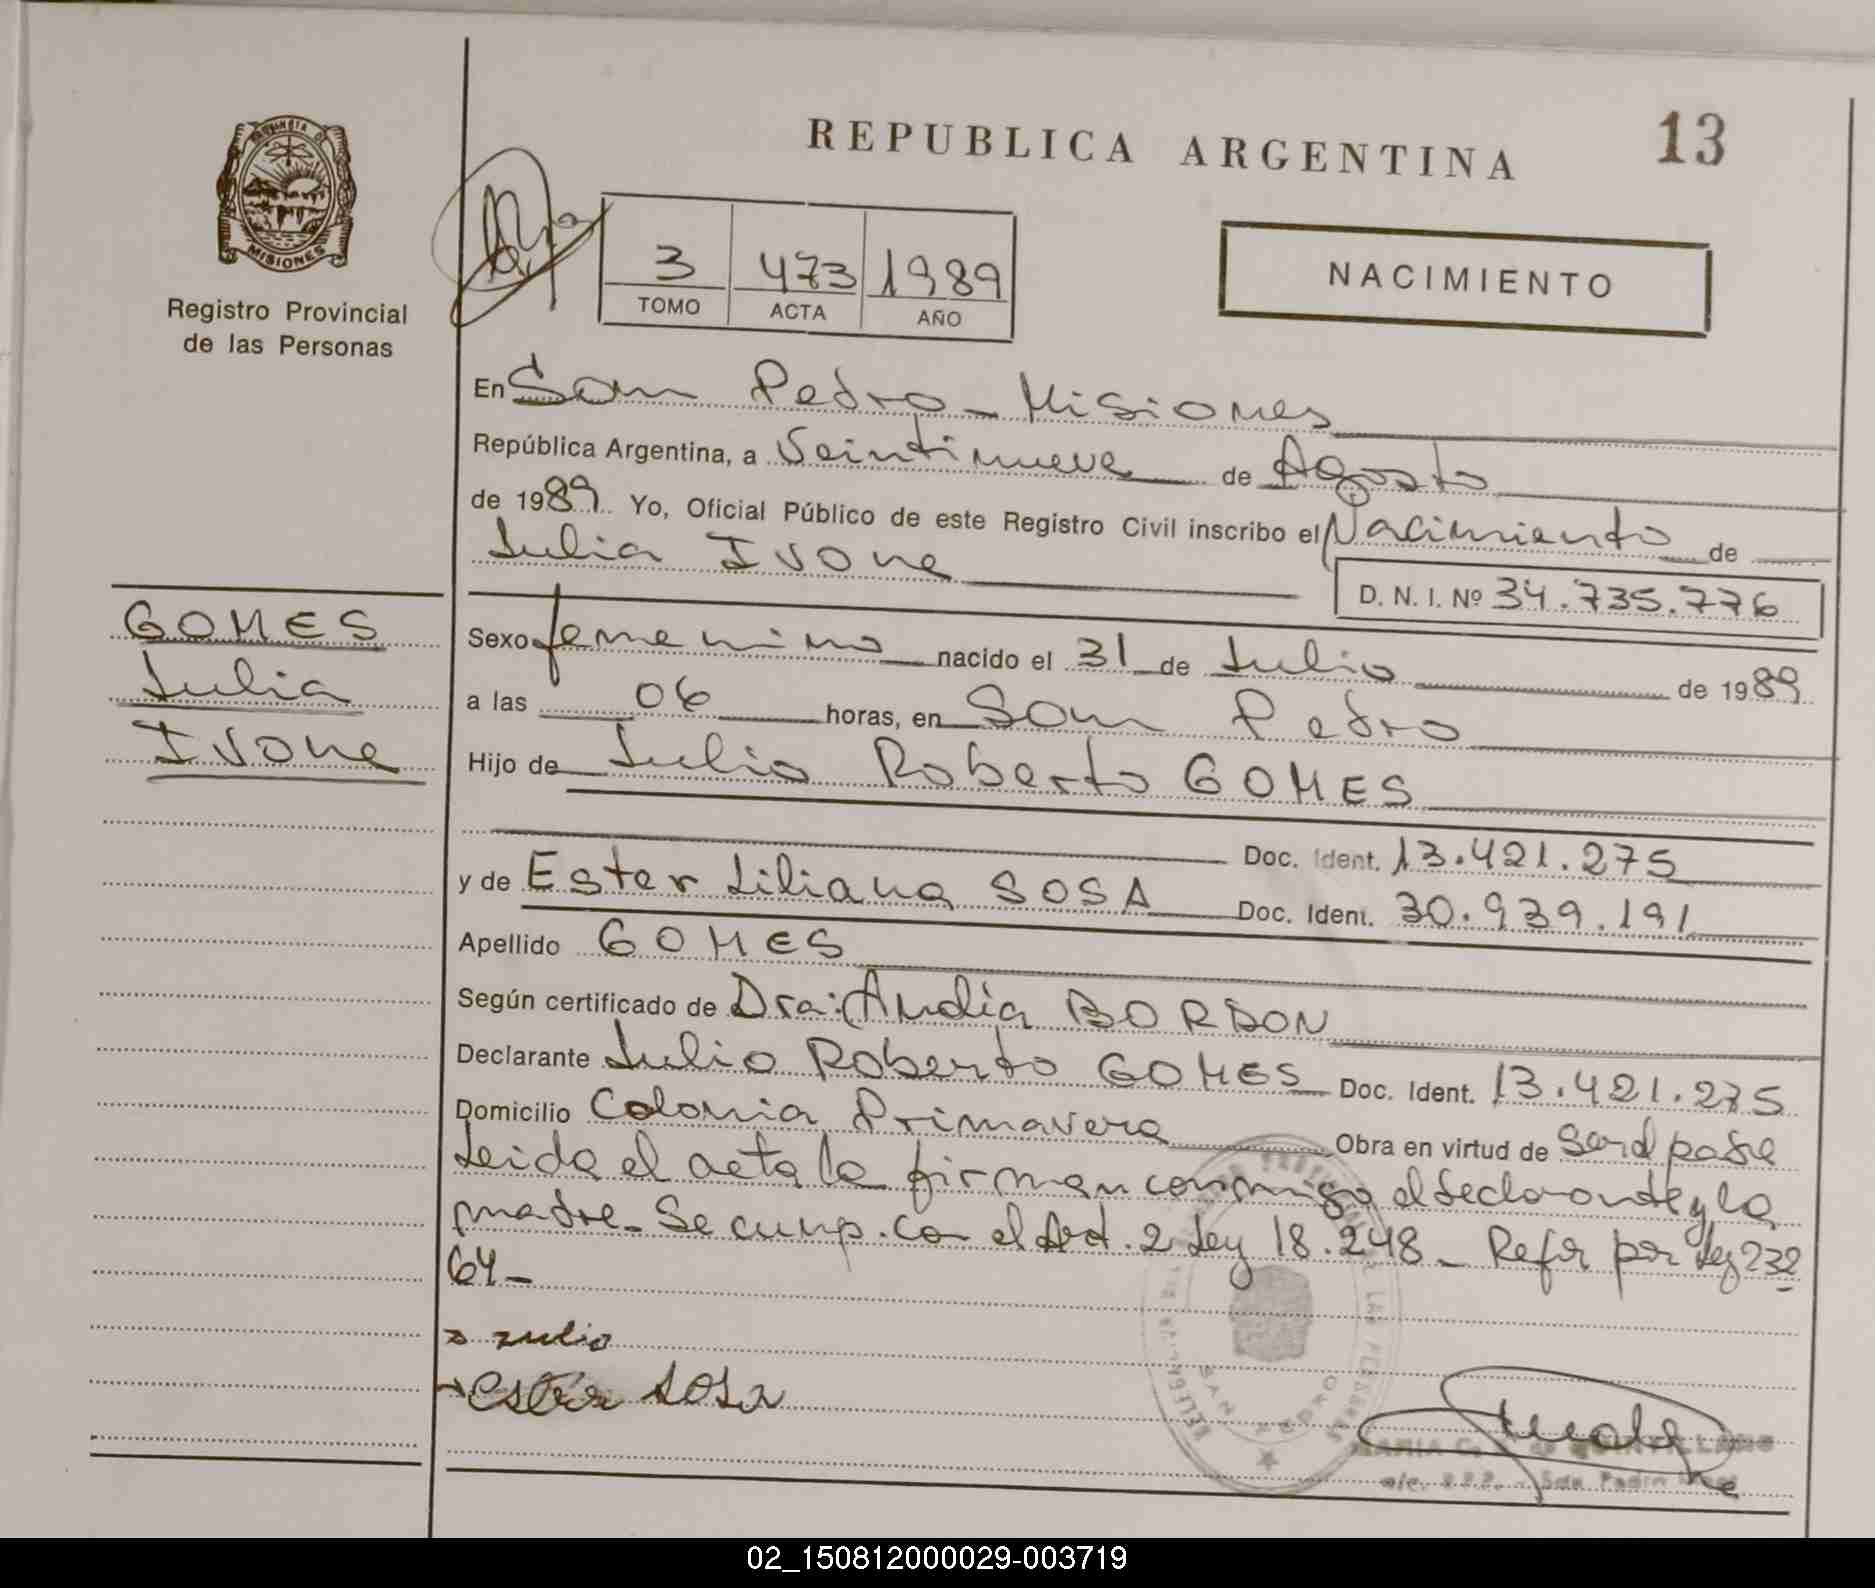 REPUBLICA ARGENTINA
13
PROVINCIA DE
MISIONES
Registro Provincial
de las Personas
3 473 1989
TOMO ACTA AÑO
NACIMIENTO
En San Pedro - Misiones
República Argentina, a Veintinueve de Agosto
de 1989. Yo, Oficial Público de este Registro Civil inscribo el Nacimiento de
Julia Ivone
D. N. I. Nº 34.735.776
GOMES
Julia
Ivone
Sexo femenino nacido el 31 de Julio de 1989
a las 06 horas, en San Pedro
Hijo de Julio Roberto GOMES
Doc. Ident. 13.421.275
y de Ester Liliana SOSA Doc. Ident. 30.939.191
Apellido GOMES
Según certificado de Dra: BORDON
Declarante Julio Roberto GOMES Doc. Ident. 13.421.275
Domicilio Colonia Primavera Obra en virtud de ser el padre
Leida el acta la firman conmigo el declarante y la
madre - Se cump. con el Art. 2 Ley 18.248 - Refor por Ley 232
64 -
Julio
ester sosa
SAN PEDRO
MARIA C.
San Pedro
02_150812000029-003719